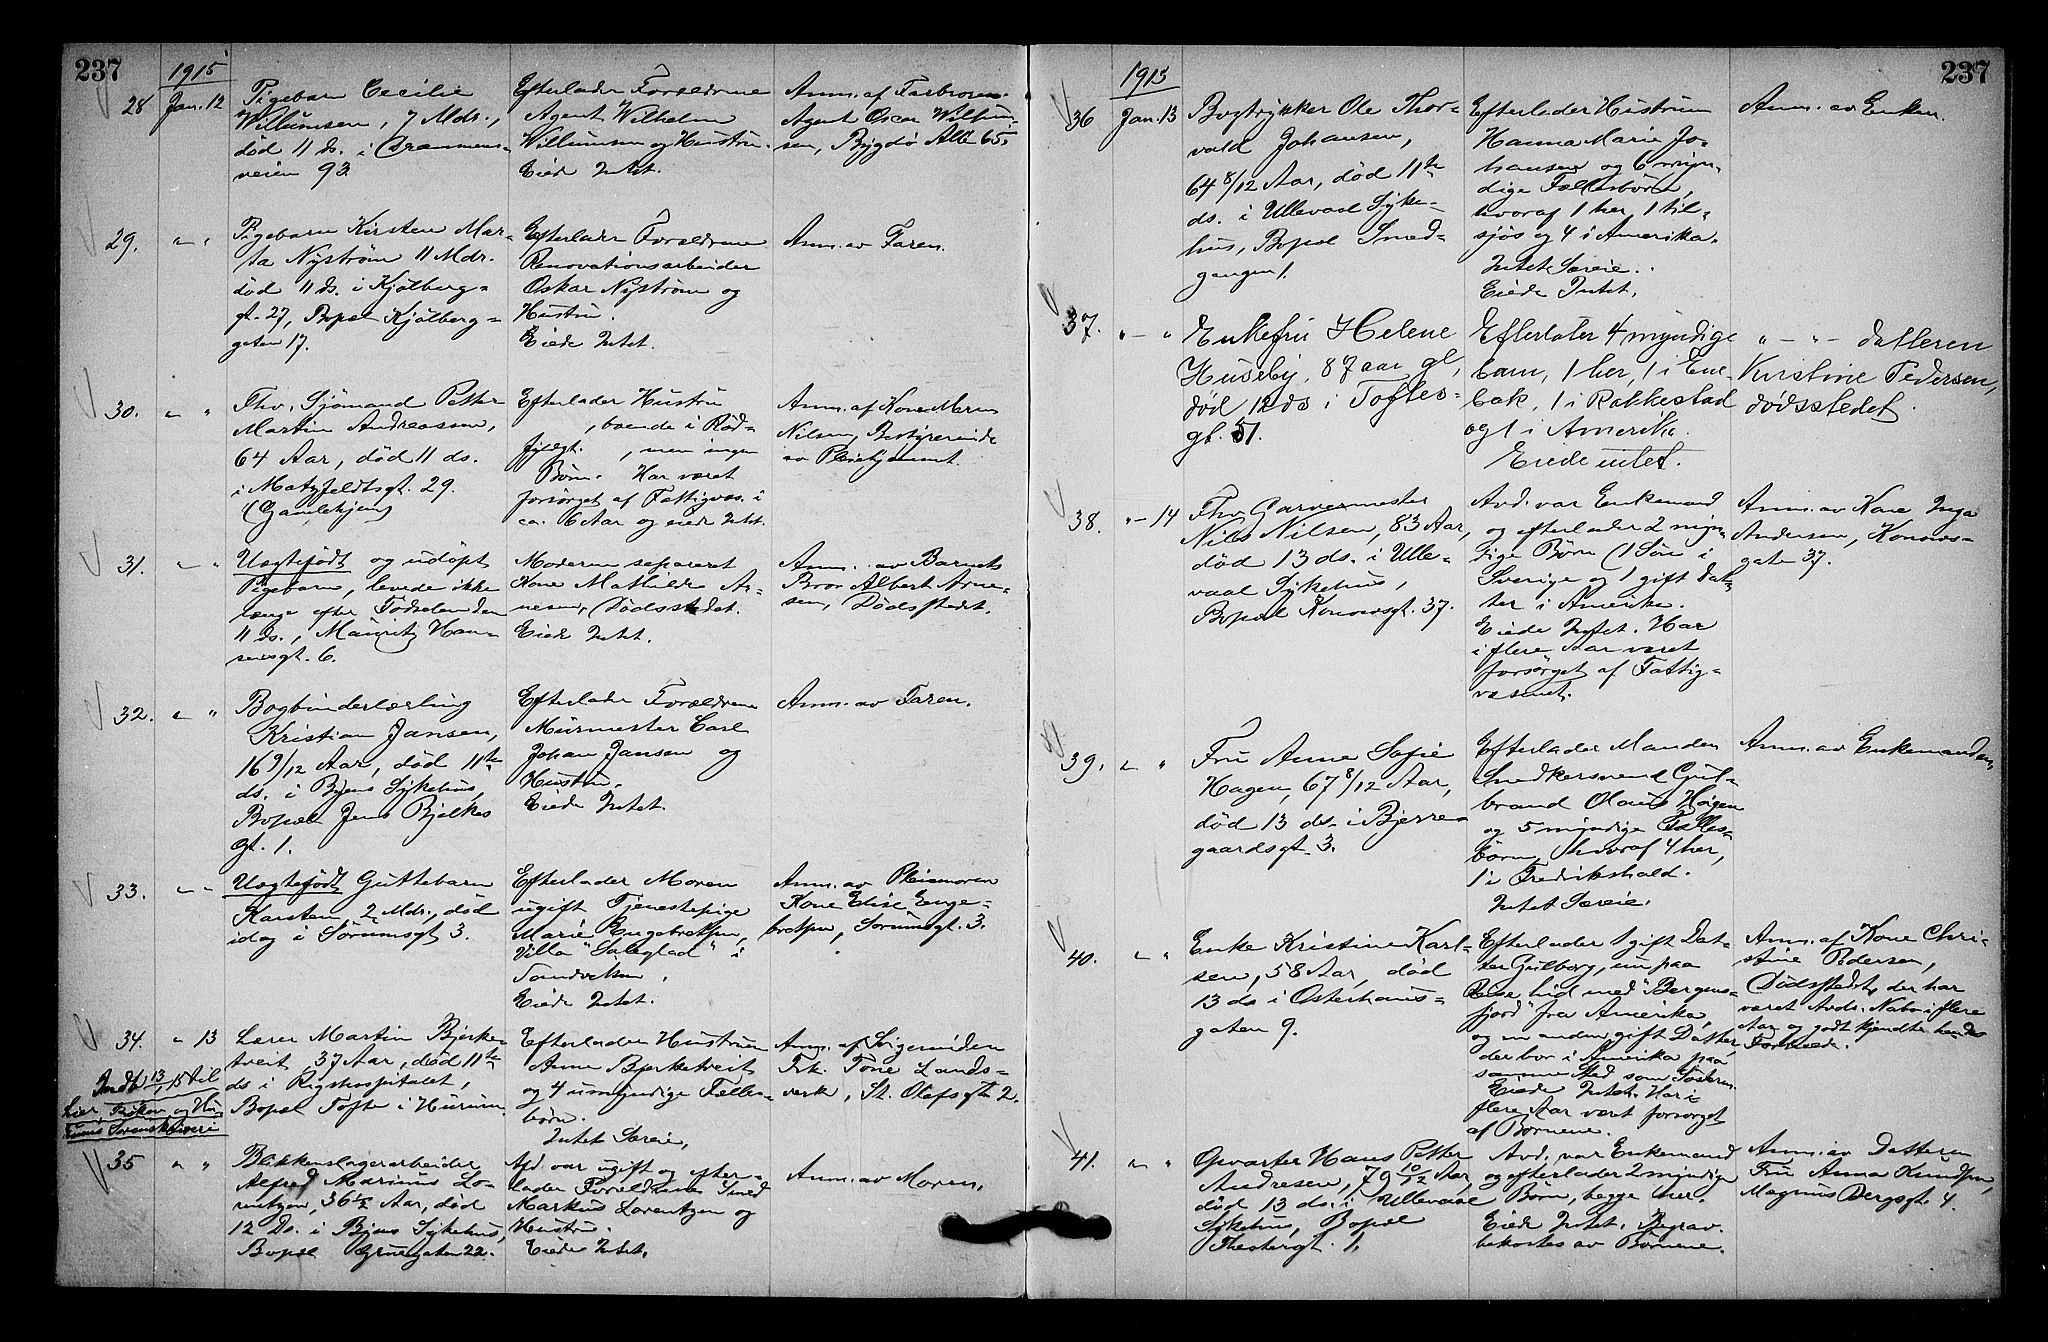 237
1915
28
Jan. 12
Pigebarn Cecilie
Willumsen, 7 Mdr.,
död 11 ds. i Drammens-
veien 93
Efterlader Forældrene
Agent Wilhelm
Willumsen og Hustru.
Eiede Intet.
Anm. af Farbroren
Agent Oscar Willum-
sen, Bygdö Allé 65.
29.
" "
Pigebarn Kirsten Mar-
ta Nyström 11 Mdr.
död 11 ds. i Kjölberg-
gt. 27, Bopæl Kjölberg-
gaten 17.
Efterlader Forældrene
Renovationsarbeider
Oskar Nyström og
Hustru.
Eiede Intet.
Anm. av Faren.
30.
" "
Fhv. Sjömand Petter
Martin Andreassen,
64 Aar, död 11 ds.
i Matzfeldtsgt. 29.
(Gamlehjem)
Efterlader Hustru
, boende i Röd-
, men ingen
Börn. Har været
forsörget af Fattigvæs. i
ca. 6 Aar og eiede Intet.
Anm. af Kone Maren
Nilsen, Bestyrerinde
av Pleiehjemmet.
31.
" "
Uægtefödt og udöpt
Pigebarn, levede ikke
længe efter Födselen den
11 ds., Mauritz Han-
sensgt. 6.
Moderen separeret
Kone Mathilde Ar-
nesen, Dödsstedet.
Eiede Intet.
Anm. av Barnets
Bror Albert Arne-
sen, Dödsstedet.
32.
" "
Bogbinderlærling
Kristian Jansen,
16 9/12 Aar, död 11te
ds. i Byens Sykehus,
Bopæl Jens Bjelkes
gt. 1.
Efterlader Forældrene
Murmester Carl
Johan Jansen og
Hustru.
Eiede Intet.
Anm. av Faren.
33.
" "
Uægtefödt Guttebarn
Karsten, 2 Mdr., död
idag i Sörumsgt. 3.
Efterlader Moren
ugift Tjenestepige
Marie Engebretsen,
Villa "Soleglad" i
Sandviken.
Eiede Intet.
Anm. av Pleiemoren
Kone Elise Enge-
bretsen, Sörumsgt. 3.
34.
" 13
Indb. 13/1 15 til
Lier, Röken og Hu-
rums Sorenskriveri
Lærer Martin Bjerke-
treit, 37 Aar, död 11te
ds. i Rigshospitalet,
Bopæl Tofte i Hurum.
Efterlader Hustruen
Anne Bjerketreit
og 4 umyndige Fælles-
börn.
Intet Særeie.
Anm. af Svigerinden
Frk. Tone Lands-
verk, St. Olafsgt. 2.
35
" "
Blikkenslagerarbeider
Alfred Marinius Lo-
rentzen, 36 1/2 Aar, död
12 Ds. i Byens Sykehus,
Bopæl Grünergaten 22.
Afd. var ugift og efter-
lader Forældrene Smed
Markus Lorentzen og
Hustru.
Eiede Intet.
Anm. av Moren.
237
1915
36
Jan. 13
Bogtrykker Ole Thor-
vald Johansen,
64 8/12 Aar, död 11te
ds. i Ullevaal Syke-
hus, Bopæl Smed-
gangen 1.
Efterlader Hustruen
Hanna Marie Jo-
hansen og 6 myn-
dige Fællesbörn,
hvoraf 1 her, 1 til-
sjös og 4 i Amerika.
Intet Særeie.
Eiede Intet.
Anm. av Enken.
37.
" — "
Enkefru Helene
Huseby, 87 aar gl,
död 12 ds i Toftes-
gt. 51.
Efterlater 4 myndige
barn, 1 her, 1 i Ene-
bak, 1 i Rakkestad
og 1 i Amerika.
Eiede intet.
" — " — datteren
Kristine Pedersen,
dödsstedet.
38.
" — 14
Fhv. Garvermester
Nils Nilsen, 83 Aar,
död 13 ds. i Ulle-
vaal Sykehus,
Bopæl Konowsgt. 37.
Avd. var Enkemand
og efterlader 2 myn-
dige Börn (1 Sön i
Sverige og 1 gift Dat-
ter i Amerika.
Eiede Intet. Har
i flere Aar været
forsörget af Fattig-
væsenet.
Anm. av Kone Inga
Andersen, Konows-
gate 37.
39.
" "
Fru Anna Sofie
Hagen, 67 8/12 Aar,
död 13 ds. i Bjerre-
gaardsgt. 3.
Efterlader Manden
Snedkersvend Gul-
brand Olaus Hagen
og 5 myndige Fælles-
börn, hvoraf 4 her,
1 i Fredrikshald.
Intet Særeie.
Anm. av Enkemanden.
40.
" "
Enke Kristine Karl-
sen, 58 Aar, död
13 ds i Osterhaus-
gaten 9.
Efterlader 1 gift Dat-
ter Gulborg, nu paa
Reise hid med "Bergens-
fjord" fra Amerika,
og en anden gift Datter
der bor i Amerika paa
samme Sted som Sösteren.
Eiede Intet. Har i
flere Aar vært forsörget
af Börnene.
Anm. af Kone Chri-
stine Pedersen,
Dödsstedet, der har
været Avds. Nabo i flere
Aar og godt kjendte hendes
Formue.
41.
" "
Opvarter Hans Petter
Andresen, 79 10/12 Aar,
död 13 ds. i Ullevaal
Sykehus, Bopæl
Thestergt. 1.
Avd. var Enkemand
og efterlader 2 myndige
Börn, begge her.
Eiede Intet. Begrav.
bekostes av Börnene.
Anm. av Datteren
Fru Anna Knudsen,
Magnus Bergsgt. 4.